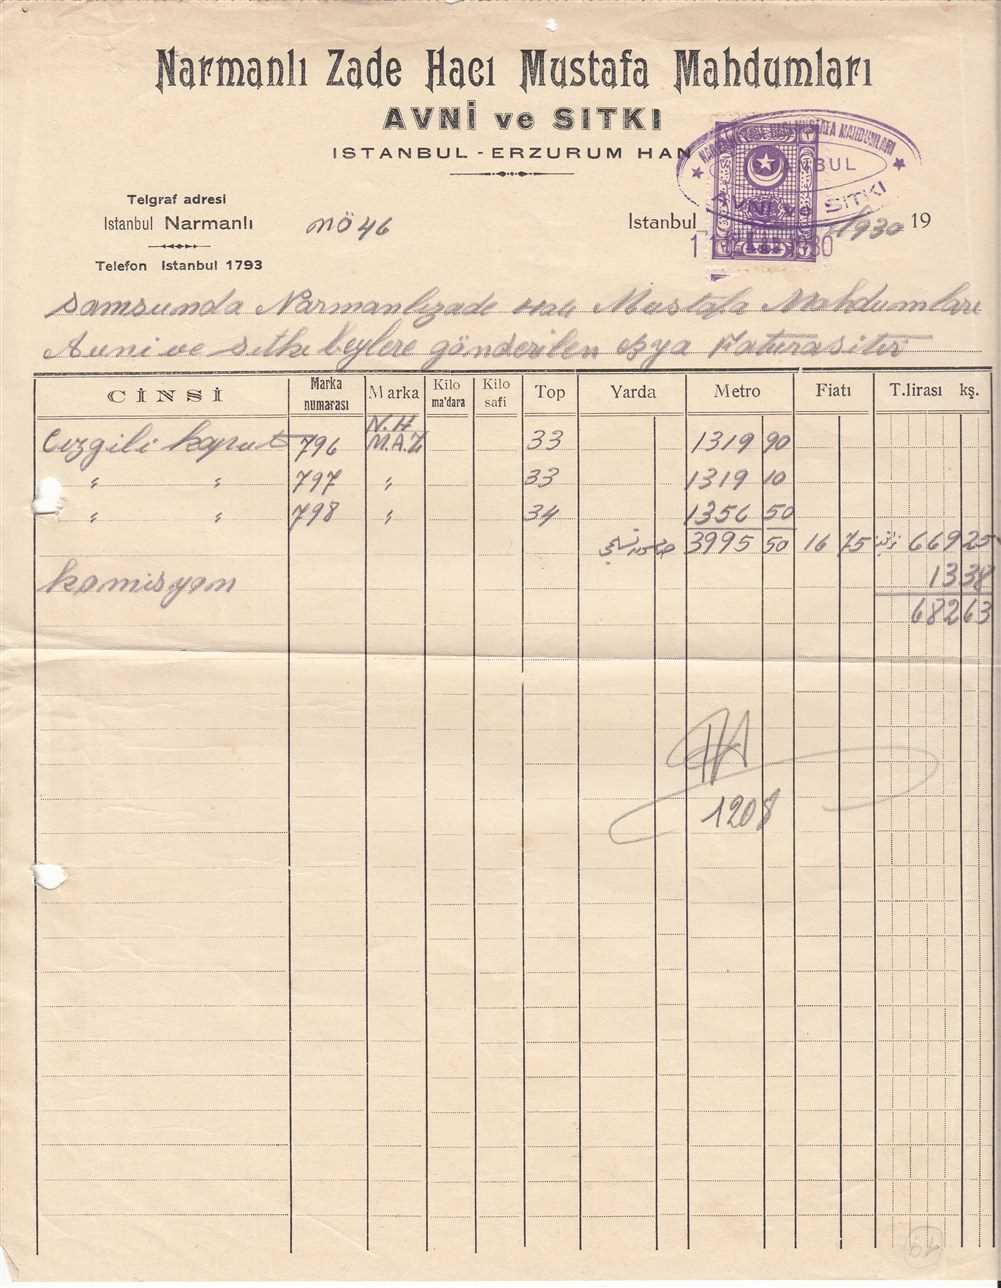 Narmanlı Zade Hacı Mustafa Mahdumları
AVNİ ve SITKI
ISTANBUL - ERZURUM HAN
NARMANLI ZADE HACI MUSTAFA MAHDUMLARI
ISTANBUL
AVNİ ve SITKI
Telgraf adresi
Istanbul Narmanlı
Telefon Istanbul 1793
NÖ 46
Istanbul 1930 19
Samsunda Narmanlızade Hacı Mustafa Mahdumları
Avni ve Sıtkı beylere gönderilen eşya Faturasıtır
CİNSİ Marka numarası Marka Kilo ma'dara Kilo safi Top Yarda Metro Fiatı T.lirası kş.
Çizgili kaput 796 N.H M.A.Z 33 1319 90
" " 797 " 33 1319 10
" " 798 " 34 1356 50
3995 50 16 75 669 25
Komisyon 13 38
682 63
1208